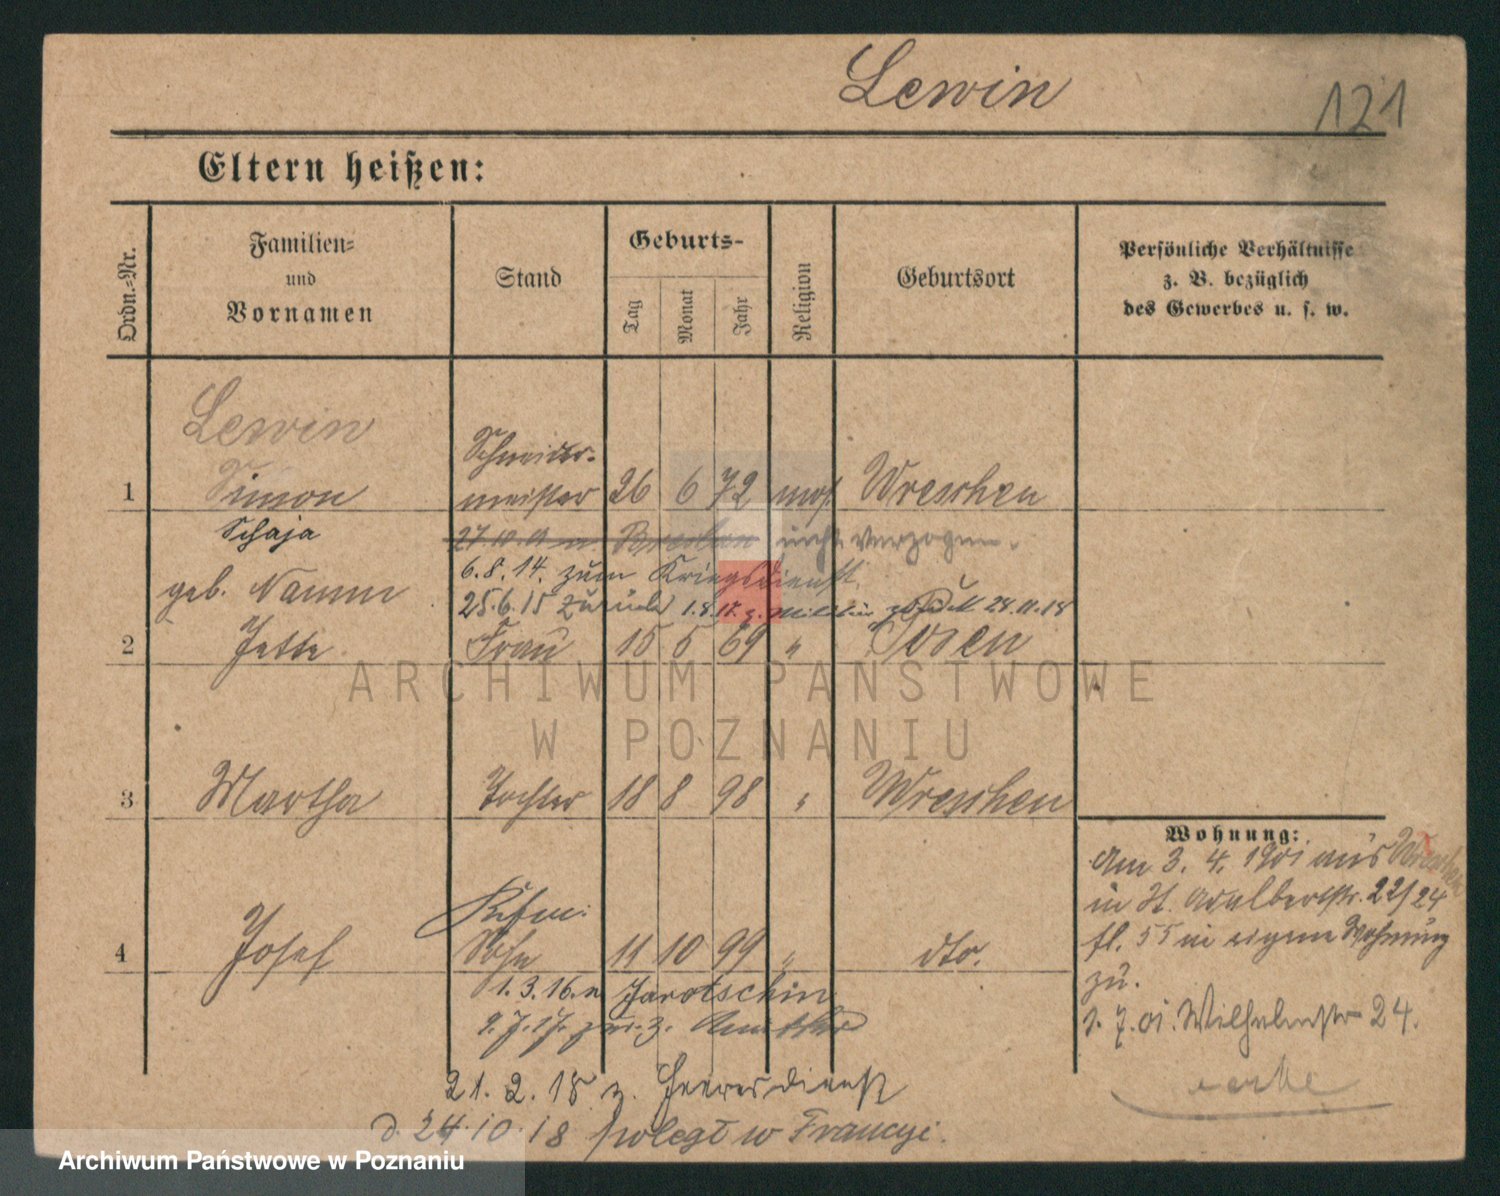 Lewin
121
Eltern heißen:
Ordn.-Nr.
Familien-
und
Vornamen
Stand
Geburts-
Tag
Monat
Jahr
Religion
Geburtsort
Persönliche Verhältnisse
z. B. bezüglich
des Gewerbes u. s. w.
Lewin
Schneider-
1 Simon meister 26 6 72 mos. Wreschen
Schaja
27.10. n. Breslau nicht verzogen.
6.8.14. zum Kriegsdienst
geb. Namm
25.6.15 zurück 1.8.17. z. 28.11.18
2 Jette Frau 15 5 69 " Posen
ARCHIWUM PAŃSTWOWE
W POZNANIU
3 Martha Tochter 18 8 98 " Wreschen
Wohnung:
Am 3. 4. 1901 aus Wreschen
in H. Adalbertstr. 22/24
fl. 55 in eigene Wohnung
zu.
1. 7. 01. Wilhelmstr 24.
Kfm.
4 Josef Sohn 11 10 99 " dto.
1. 3. 16. n Jarotschin
9. 7. 17. zur. z.
21. 2. 18 z. Heeresdienst
d. 24.10.18 poległ w Francyi.
Archiwum Państwowe w Poznaniu